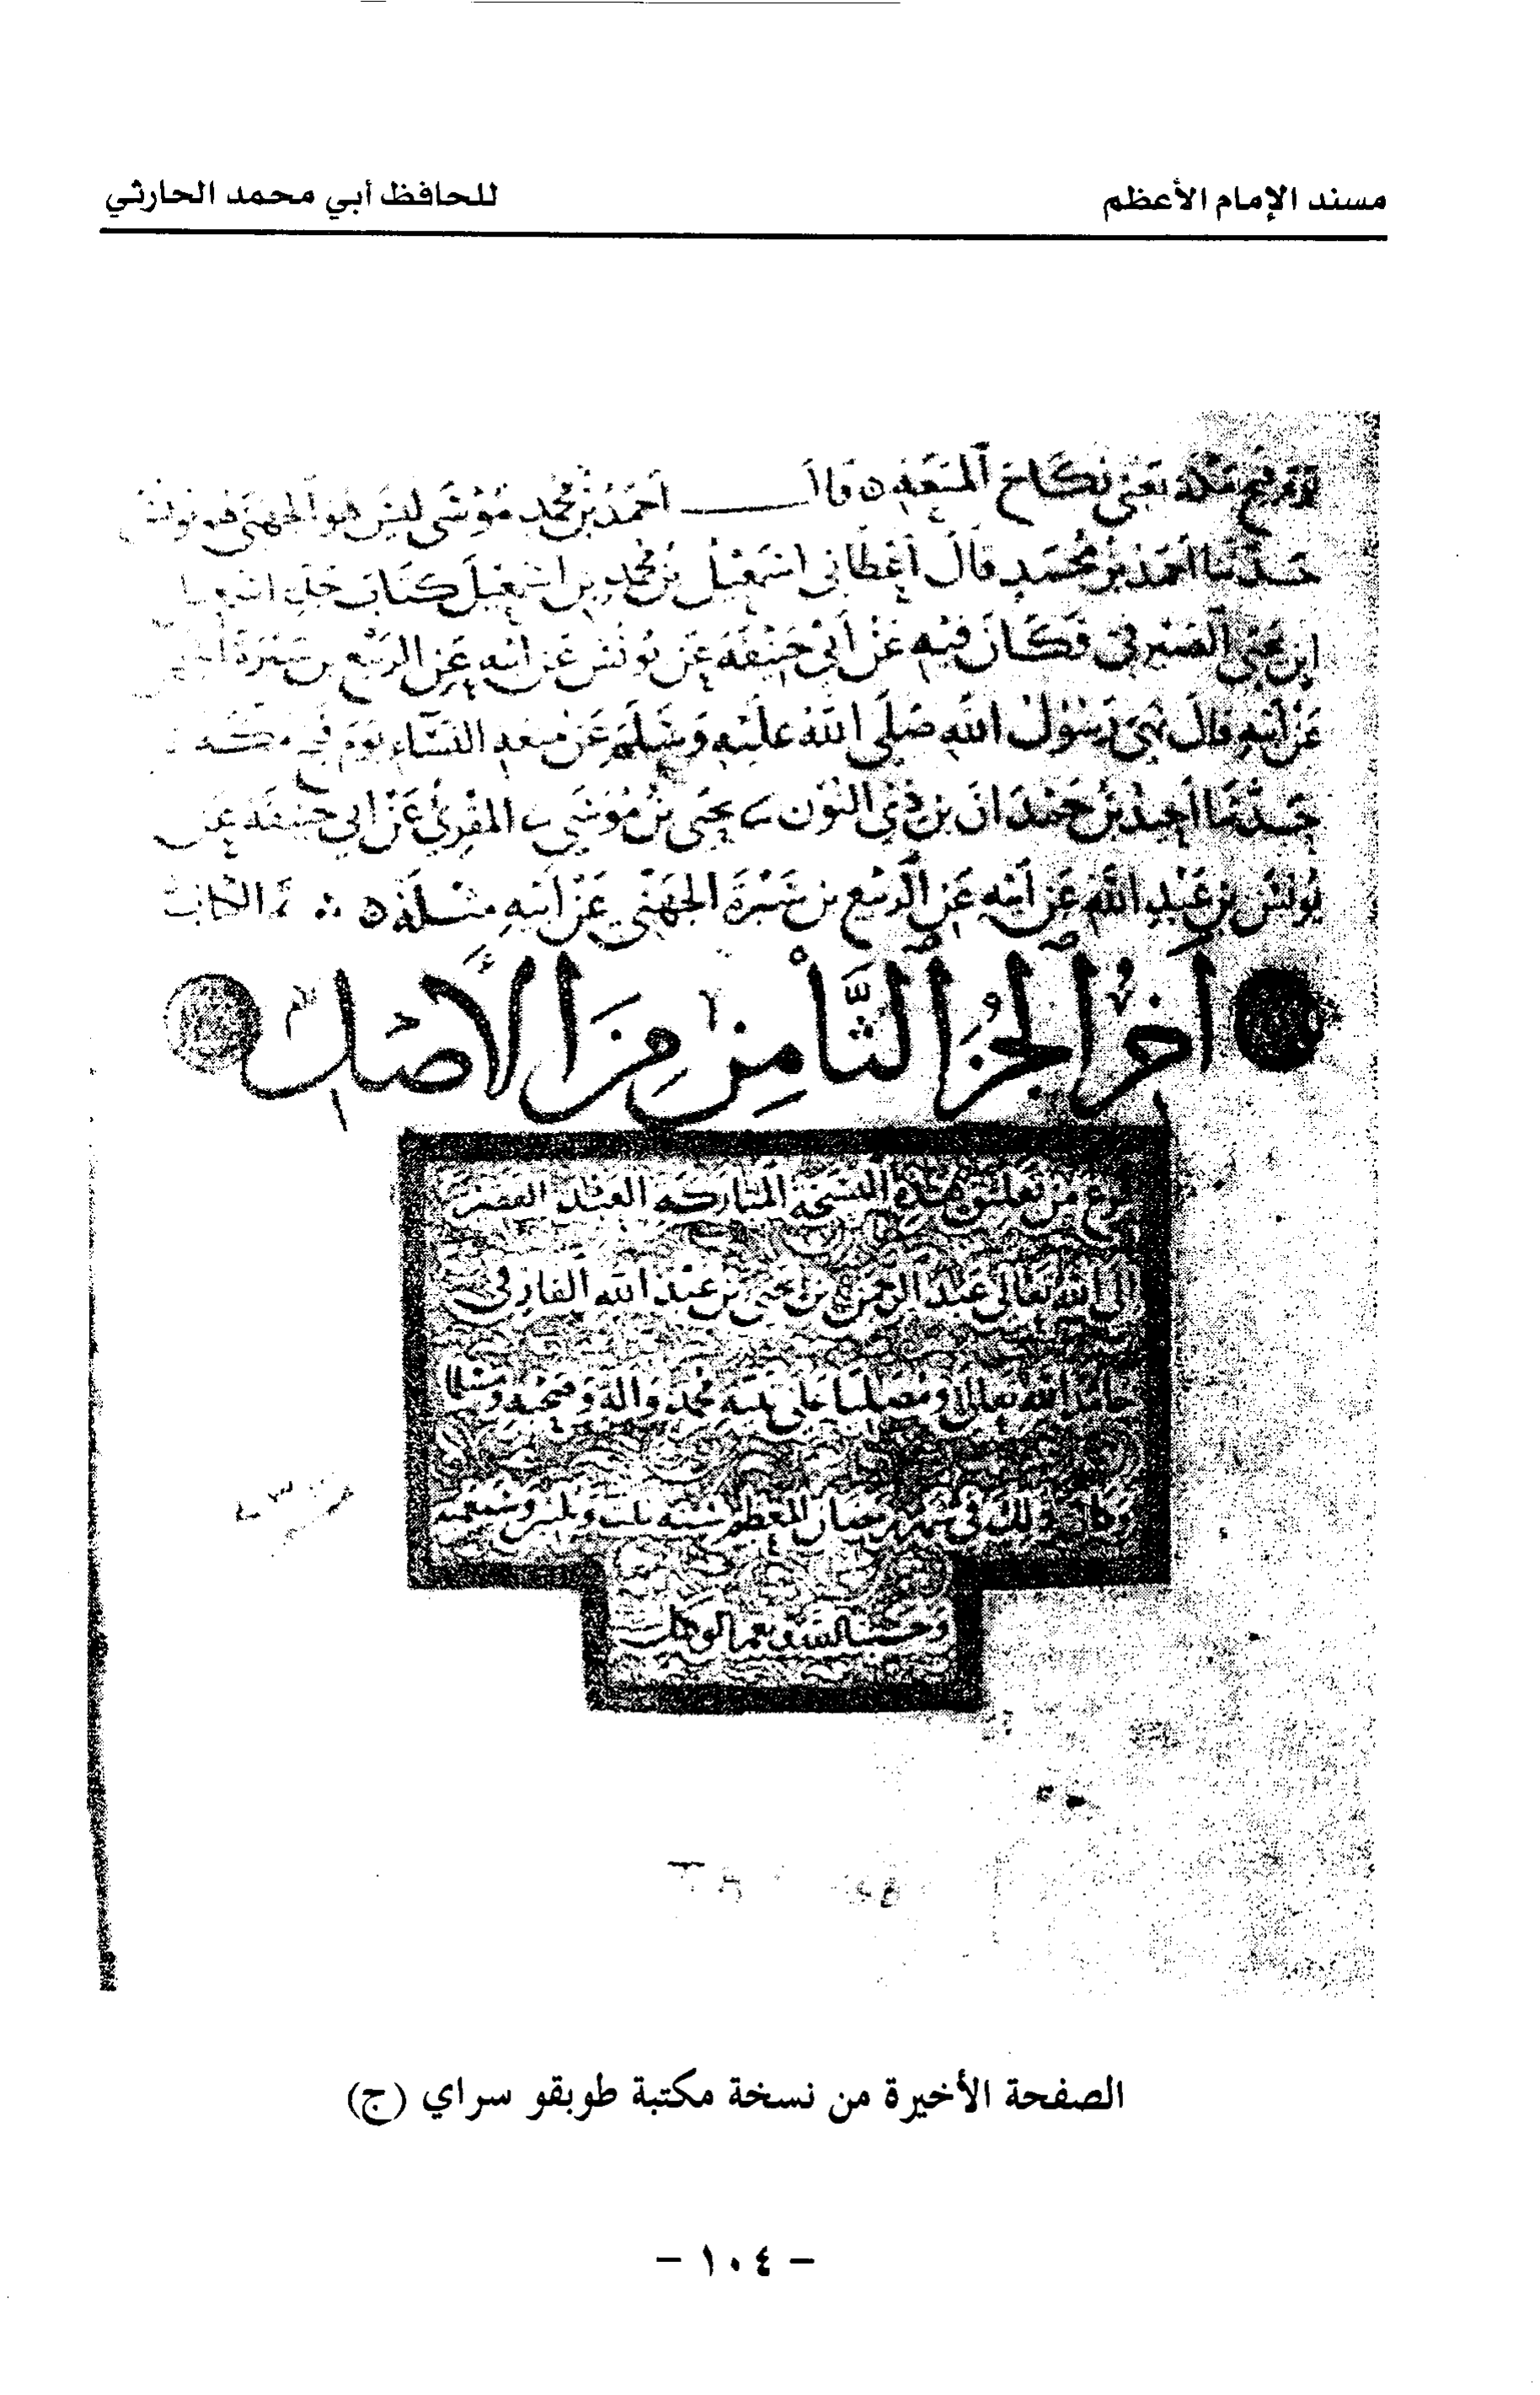 مسند الإمام الأعظم
للحافظ أبي محمد الحارثي
يوم فتح مكة يعني نكاح المتعة ه قال أحمد بن محمد موسى ليس هو الجهني هو يونس
حدثنا أحمد بن محمد قال أعطاني اسمعيل بن محمد بن اسمعيل كتاب جده اسمعيل
ابن يحيى الصيرفي فكان فيه عن أبي حنيفة عن يونس عن ابيه عن الربيع بن سبرة
عن أبيه قال نهى رسول الله صلى الله عليه وسلم عن متعة النساء يوم فتح مكة
حدثنا أحمد بن حمدان بن ذي النون يحيى بن موسى المقرئ عن ابي حنيفة عن
يونس بن عبد الله عن أبيه عن الربيع بن سبرة الجهني عن أبيه مثله ه تم الكتاب
آخر الجزء الثامن من الأصل
فرغ من تعليق هذه النسخة المباركة العبد الفقير
إلى الله تعالى عبد الرحمن بن يحيى بن عبد الله الفارقي
حامدا لله تعالى ومصليا على نبيه محمد وآله وصحبه ومسلما
وكان ذلك في شهر رمضان المعظم سنة ثلث وثلثين وسبعمية
وحسبنا الله ونعم الوكيل
الصفحة الأخيرة من نسخة مكتبة طوبقو سراي (ج)
- ١٠٤ -